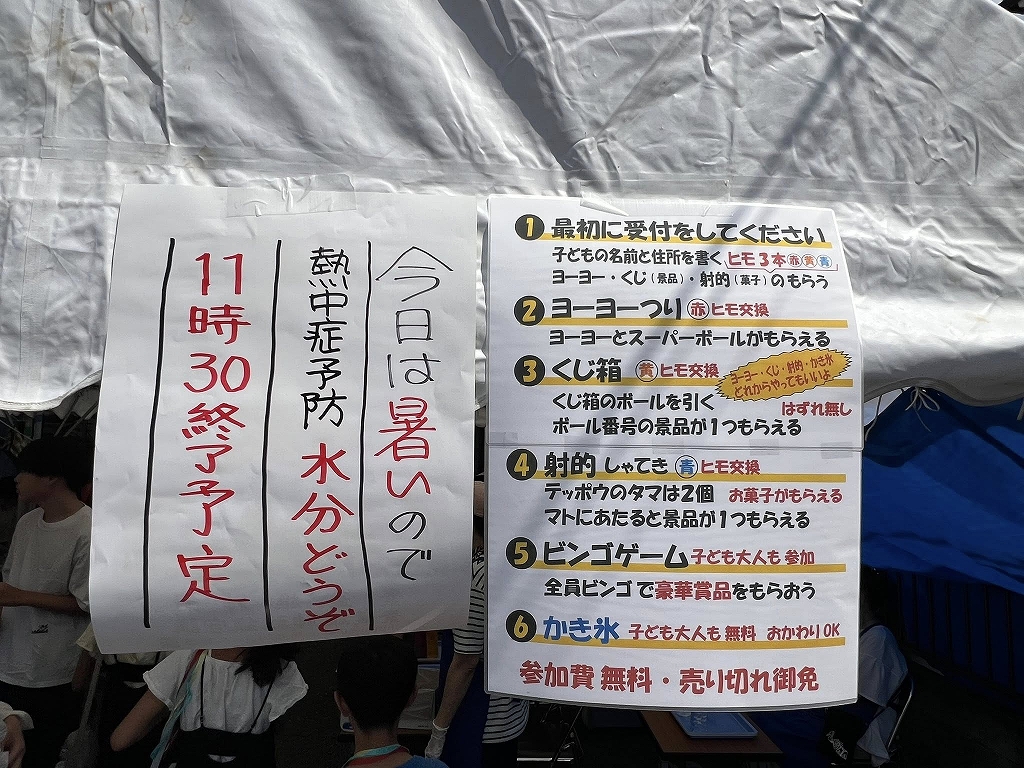 今日は暑いので
熱中症予防 水分どうぞ
11時30終了予定
1 最初に受付をしてください
子どもの名前と住所を書く ヒモ3本 赤 黄 青
ヨーヨー・くじ(景品)・射的(菓子)のもらう
2 ヨーヨーつり 赤 ヒモ交換
ヨーヨとスーパーボールがもらえる
3 くじ箱 黄 ヒモ交換
ヨーヨー・くじ・射的・かき氷
どれからやってもいいよ
くじ箱のボールを引く はずれ無し
ボール番号の景品が1つもらえる
4 射的 しゃてき 青 ヒモ交換
テッポウのタマは2個 お菓子がもらえる
マトにあたると景品が1つもらえる
5 ビンゴゲーム 子ども大人も 参加
全員ビンゴで豪華賞品をもらおう
6 かき氷 子ども大人も 無料 おかわりOK
参加費 無料・売り切れ御免